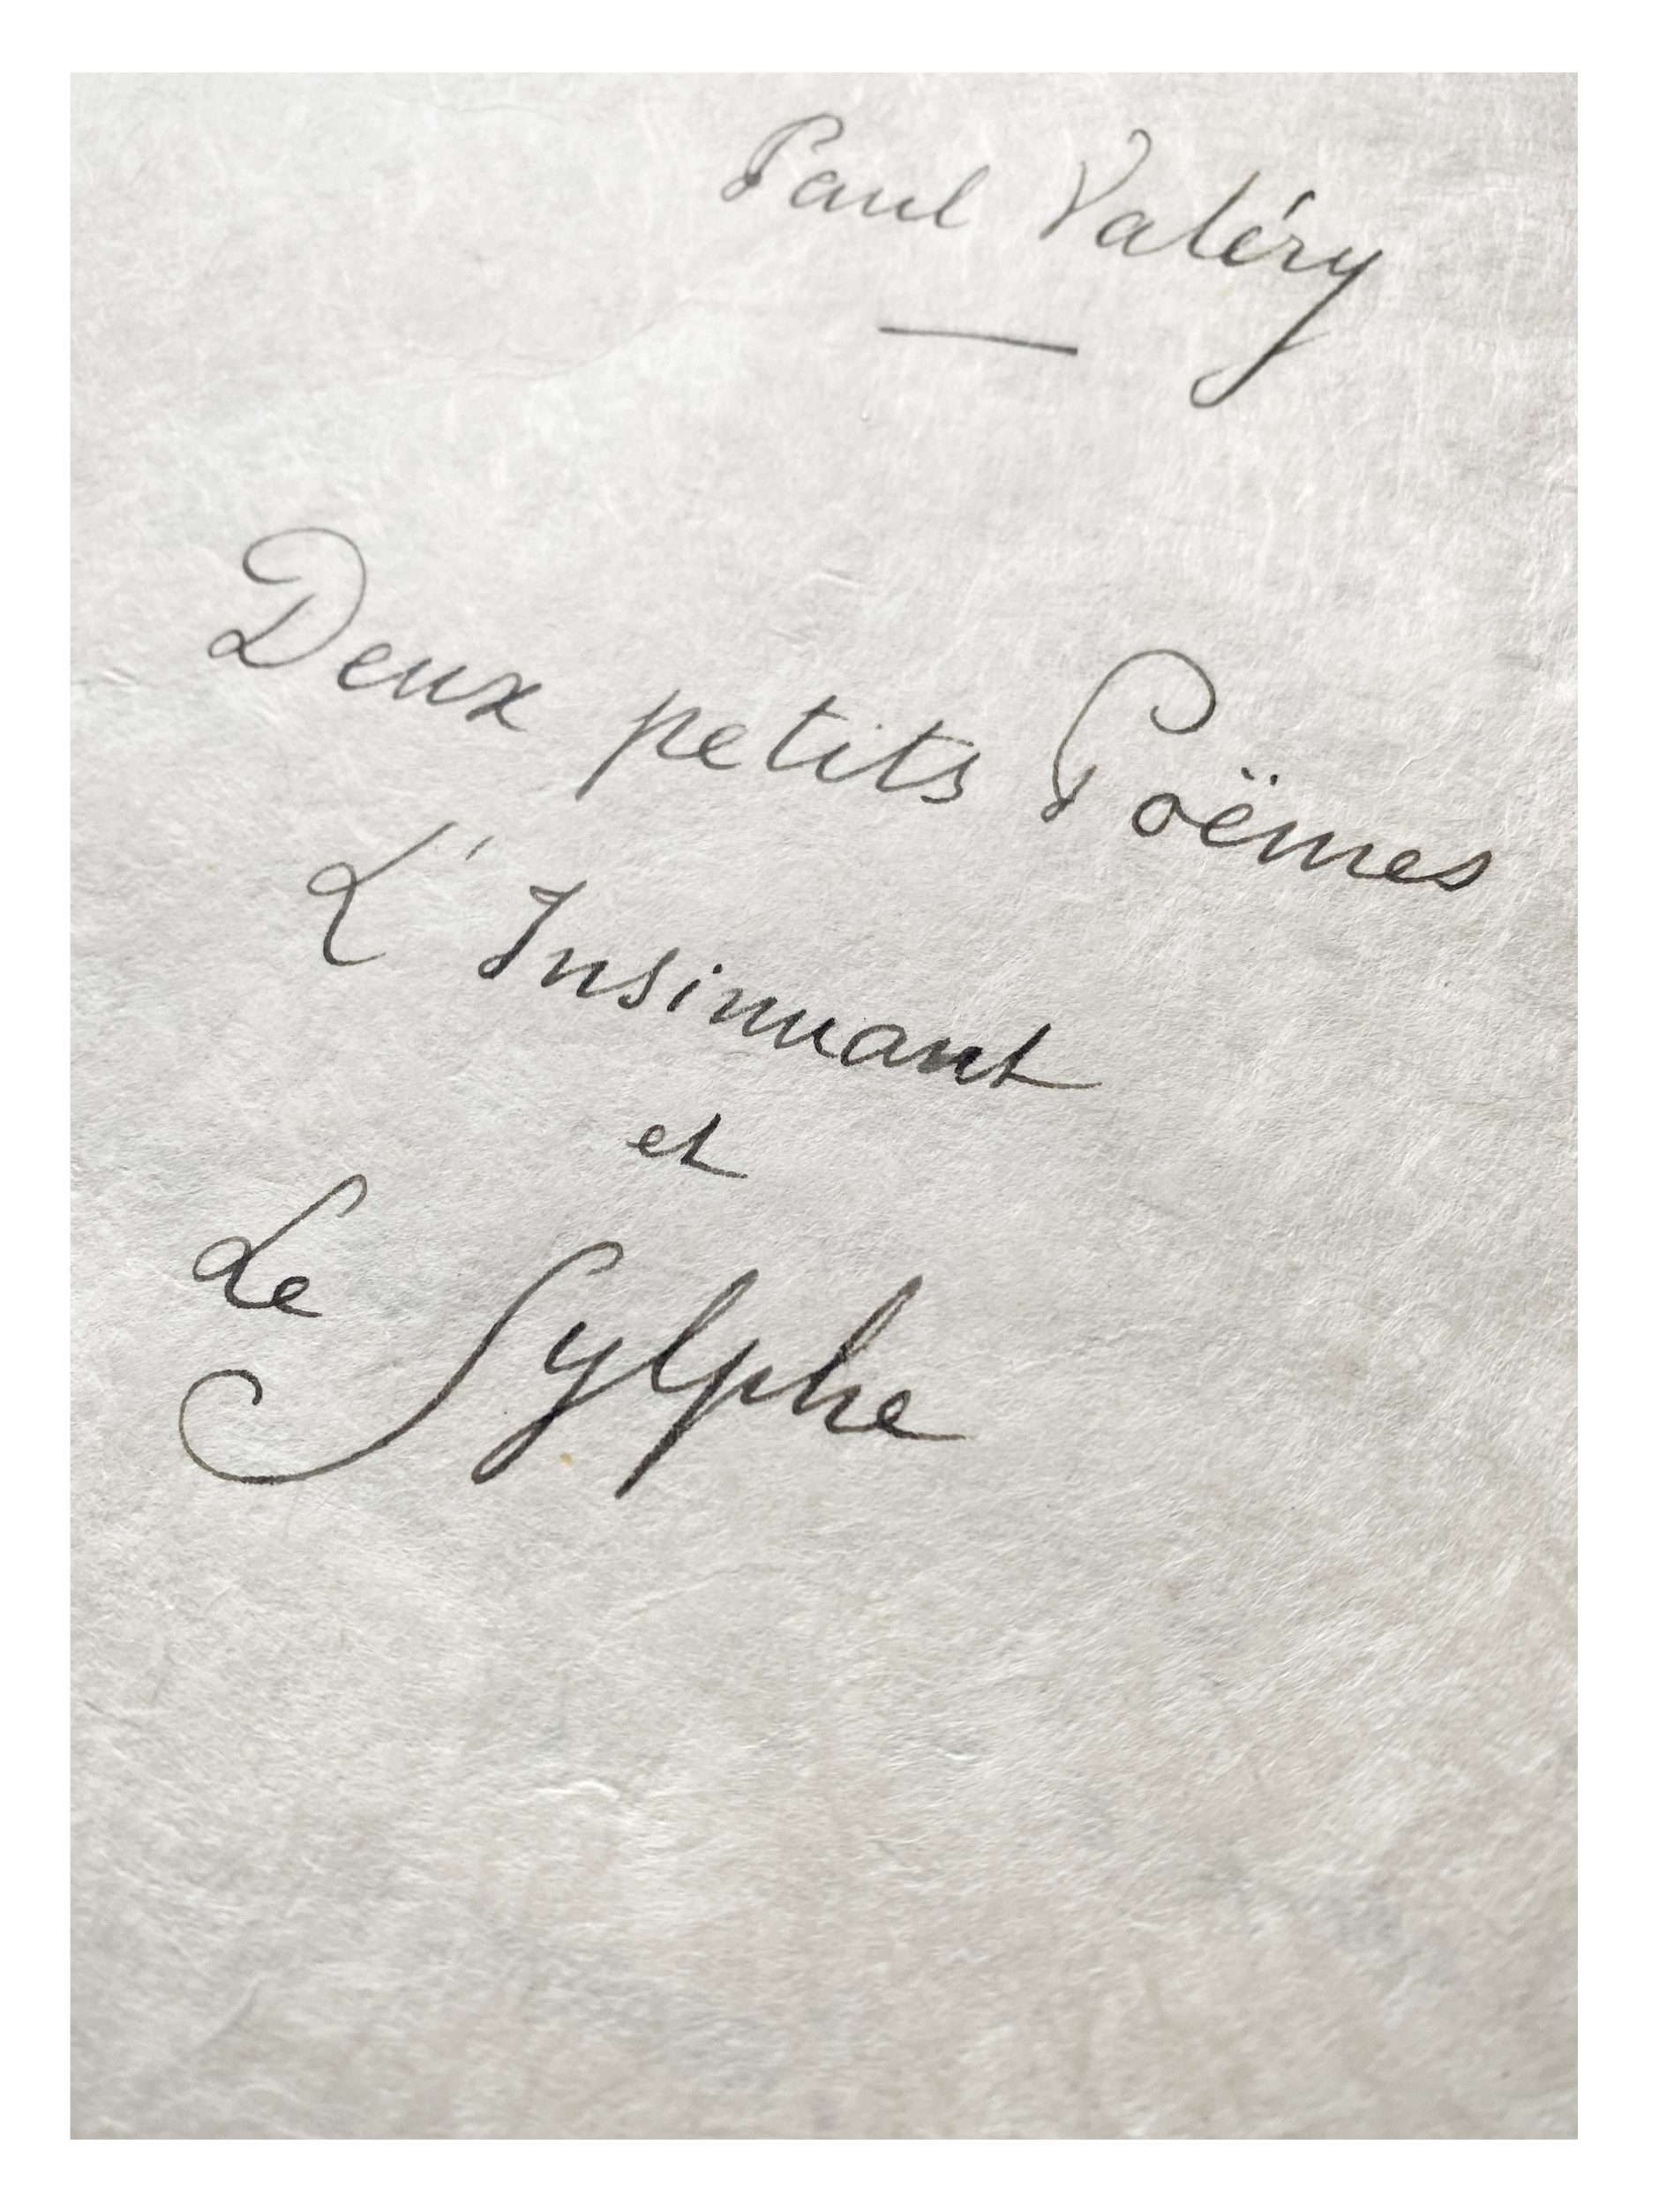 Paul Valéry
Deux petits Poëmes
L'Insinuant
et
Le Sylphe